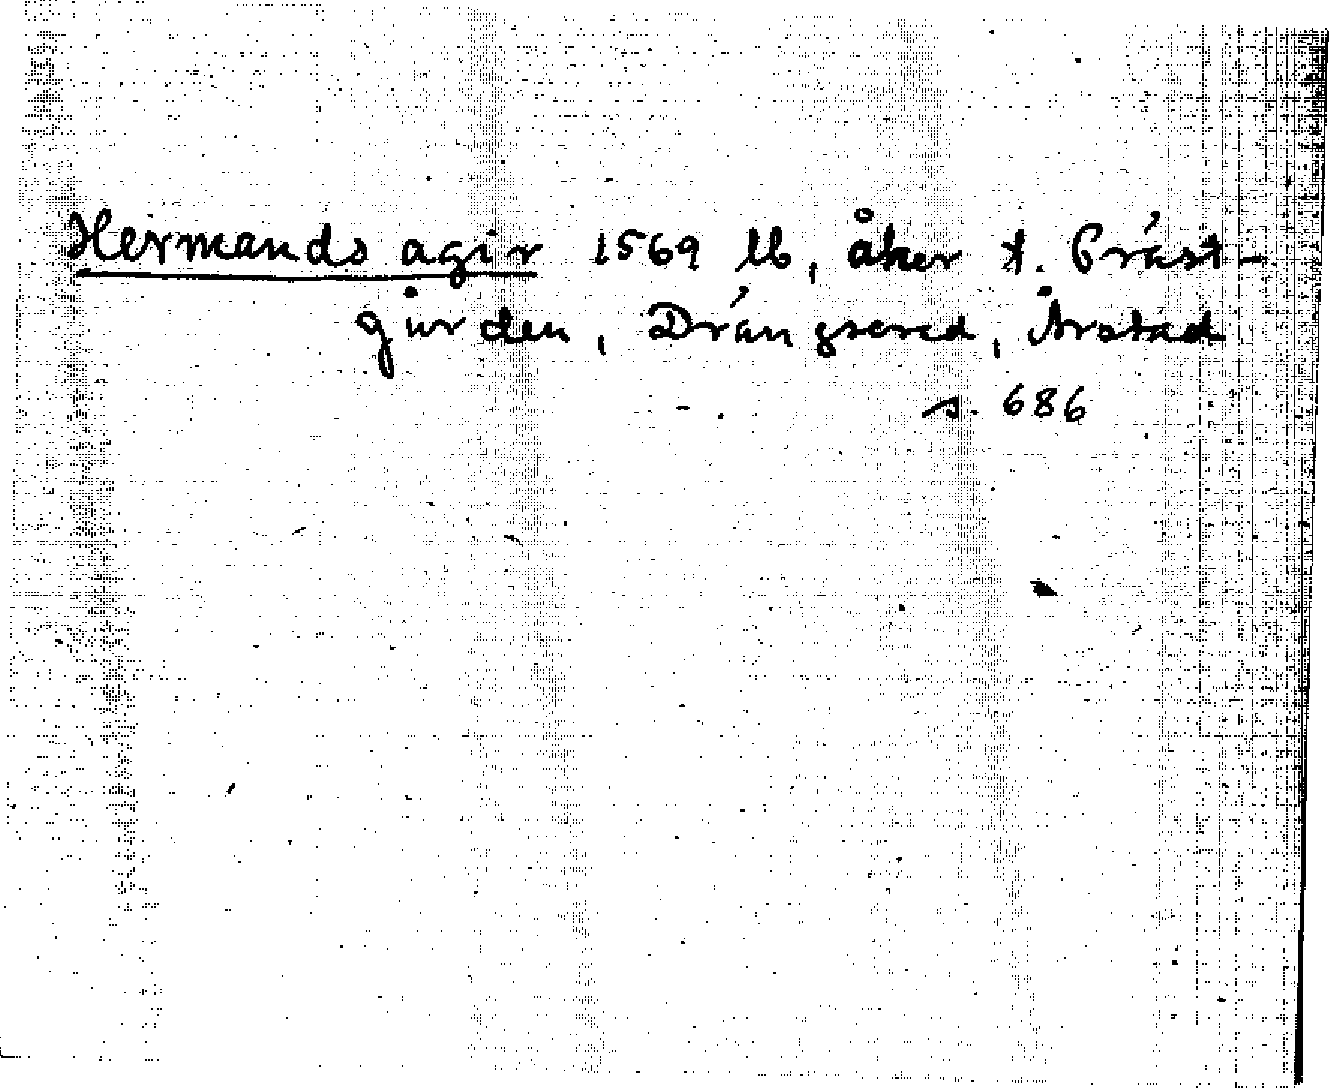 Hermands agir 1569 lb, åker t. Präst-
gården, Drängsered, Årstad
s. 686